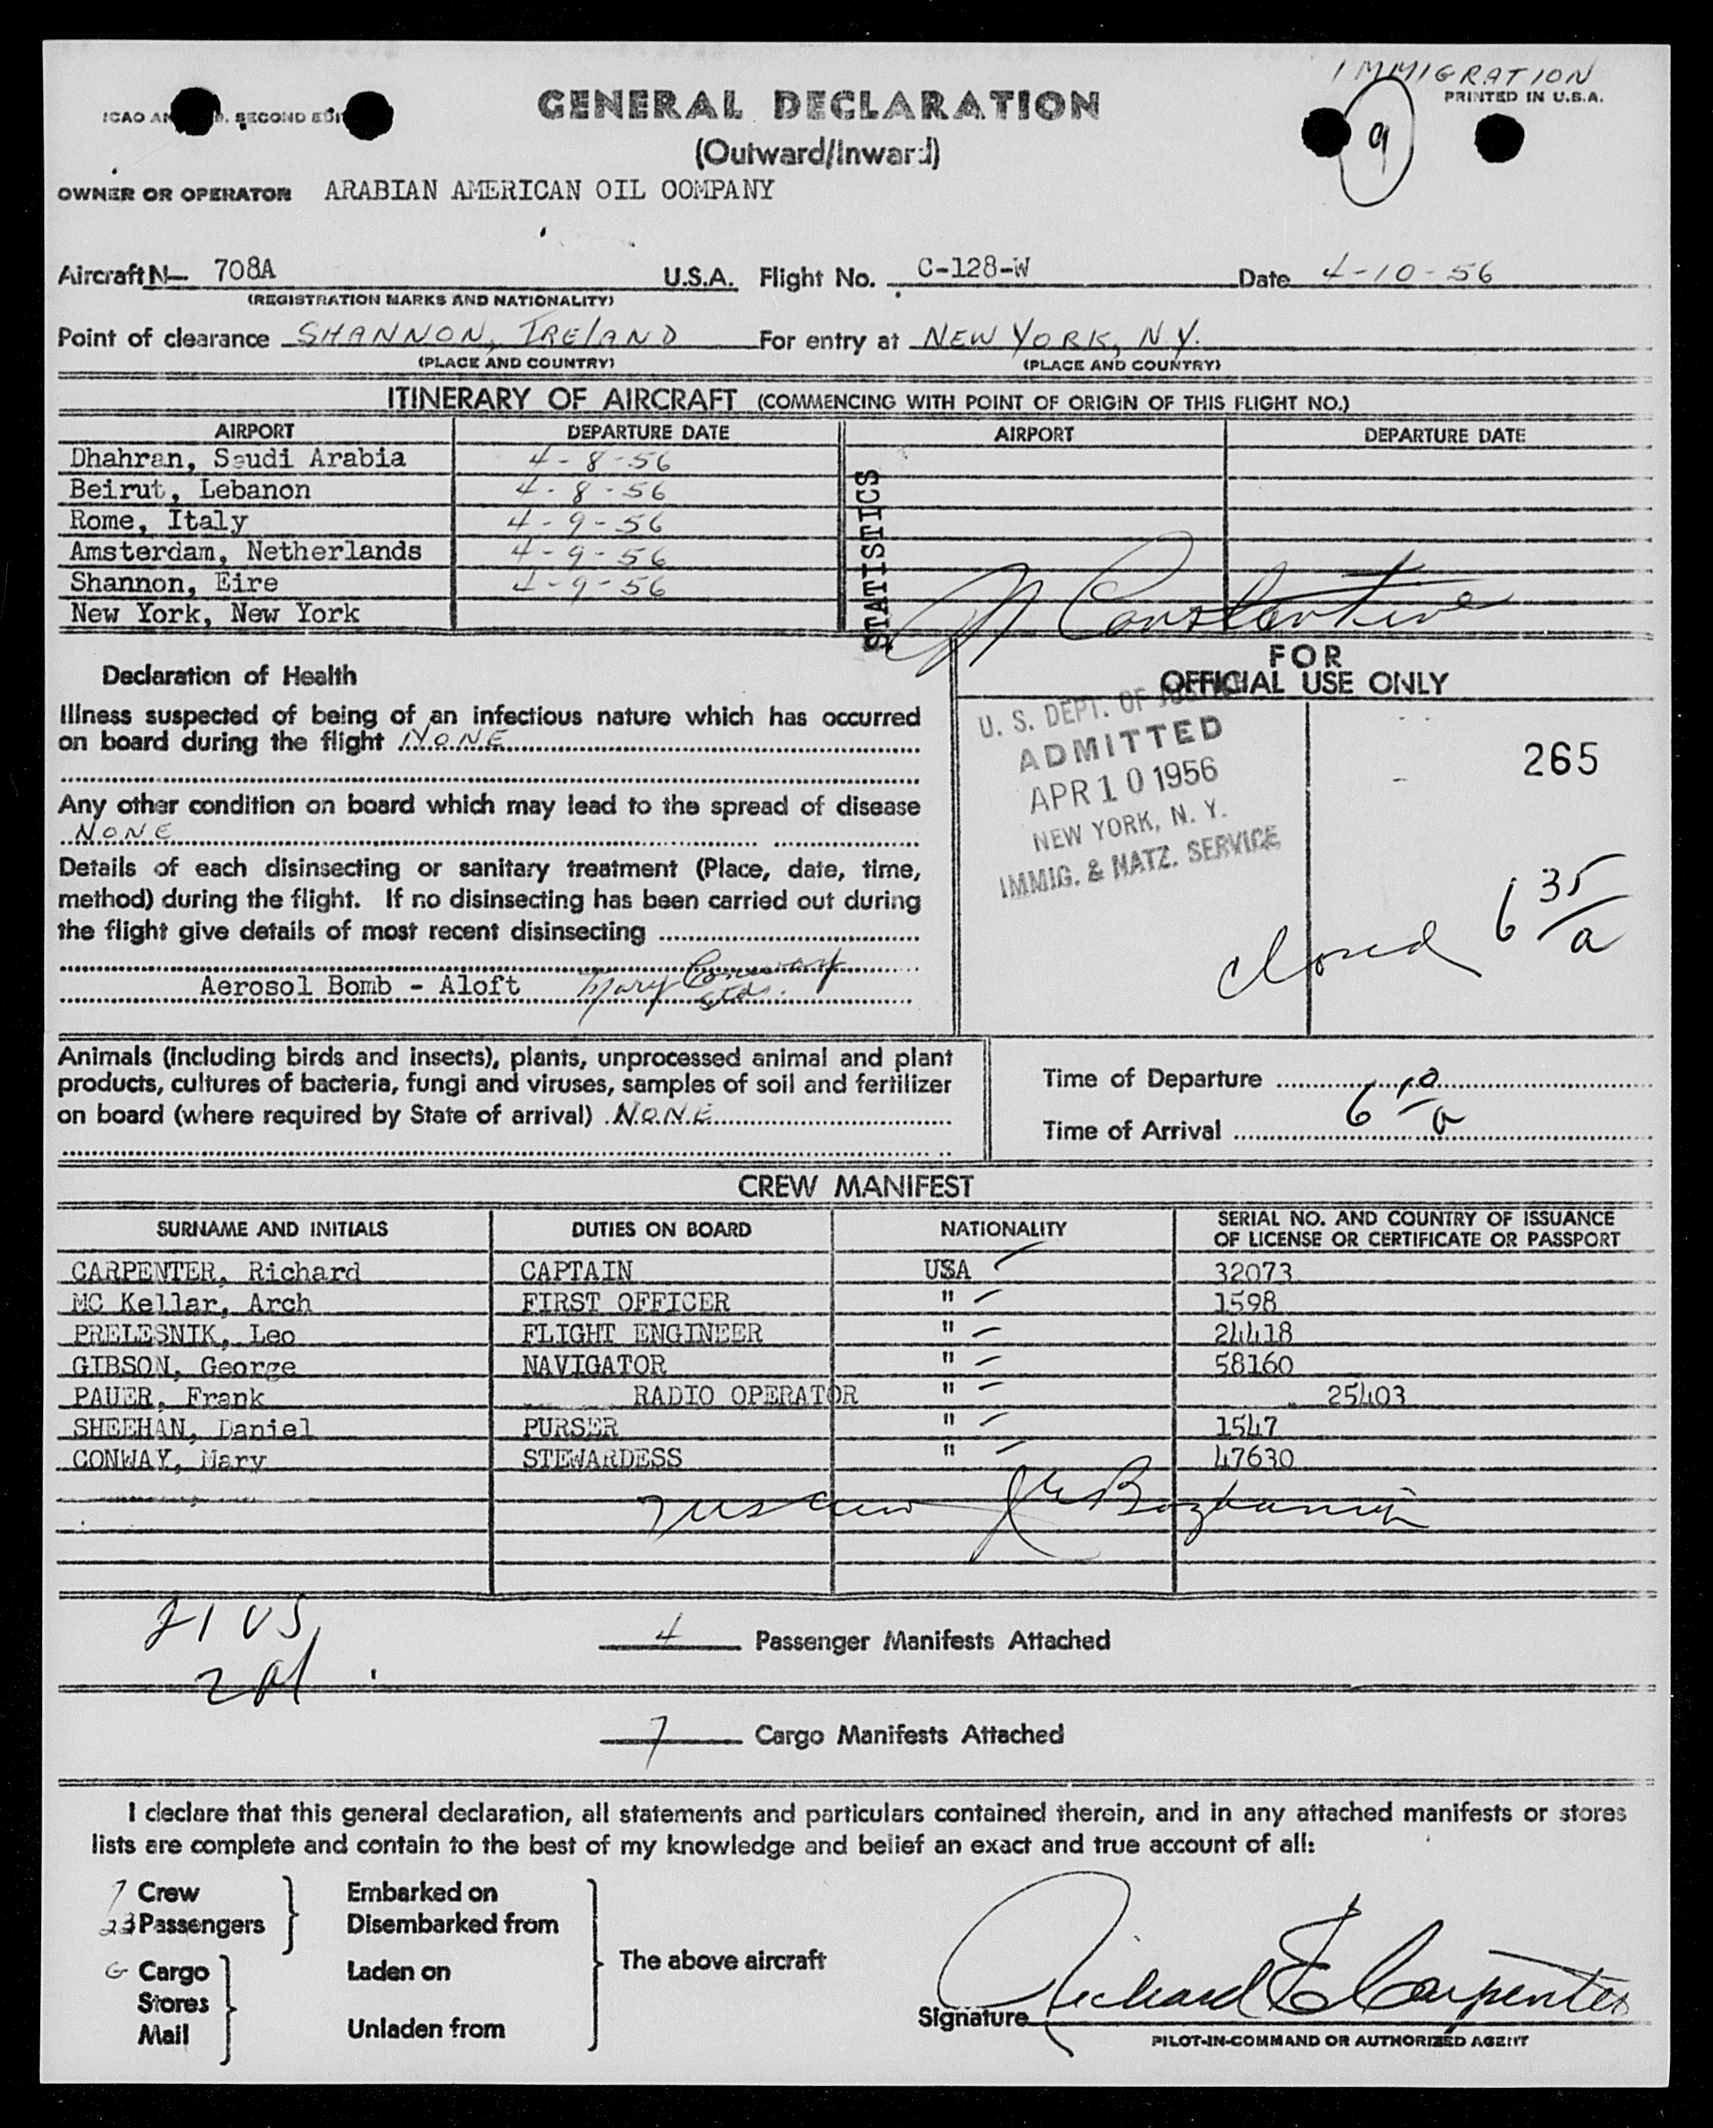 IMMIGRATION
PRINTED IN U.S.A.
SECOND
GENERAL DECLARATION
9
(Outward/Inward)
OWNER OR OPERATOR ARABIAN AMERICAN OIL COMPANY
Aircraft N— 708A U.S.A. Flight No. C-128-W Date 4-10-56
(REGISTRATION MARKS AND NATIONALITY)
Point of clearance SHANNON, IRELAND For entry at NEW YORK, N.Y.
(PLACE AND COUNTRY) (PLACE AND COUNTRY)
ITINERARY OF AIRCRAFT (COMMENCING WITH POINT OF ORIGIN OF THIS FLIGHT NO.)
AIRPORT DEPARTURE DATE AIRPORT DEPARTURE DATE
Dhahran, Saudi Arabia 4-8-56
Beirut, Lebanon 4-8-56
Rome, Italy 4-9-56
Amsterdam, Netherlands 4-9-56
Shannon, Eire 4-9-56
New York, New York
STATISTICS
Constantine
Declaration of Health
Illness suspected of being of an infectious nature which has occurred
on board during the flight NONE
Any other condition on board which may lead to the spread of disease
NONE
Details of each disinsecting or sanitary treatment (Place, date, time,
method) during the flight. If no disinsecting has been carried out during
the flight give details of most recent disinsecting
Aerosol Bomb - Aloft Mary Conway
Stds.
FOR
OFFICIAL USE ONLY
U. S. DEPT. OF JUSTICE
ADMITTED
APR 10 1956
NEW YORK, N. Y.
IMMIG. & NATZ. SERVICE
265
closed 6 35/a
Animals (including birds and insects), plants, unprocessed animal and plant
products, cultures of bacteria, fungi and viruses, samples of soil and fertilizer
on board (where required by State of arrival) NONE
Time of Departure
Time of Arrival 6 10/a
CREW MANIFEST
SURNAME AND INITIALS DUTIES ON BOARD NATIONALITY SERIAL NO. AND COUNTRY OF ISSUANCE
OF LICENSE OR CERTIFICATE OR PASSPORT
CARPENTER, Richard CAPTAIN USA 32073
MC Kellar, Arch FIRST OFFICER " 1598
PRELESNIK, Leo FLIGHT ENGINEER " 24418
GIBSON, George NAVIGATOR " 58160
PAUER, Frank RADIO OPERATOR " 25403
SHEEHAN, Daniel PURSER " 1547
CONWAY, Mary STEWARDESS " 47630
21 US
4 Passenger Manifests Attached
2 al
7 Cargo Manifests Attached
I declare that this general declaration, all statements and particulars contained therein, and in any attached manifests or stores
lists are complete and contain to the best of my knowledge and belief an exact and true account of all:
7 Crew Embarked on
23 Passengers Disembarked from
The above aircraft
Cargo Laden on
Stores
Mail Unladen from
Signature Richard E Carpenter
PILOT-IN-COMMAND OR AUTHORIZED AGENT